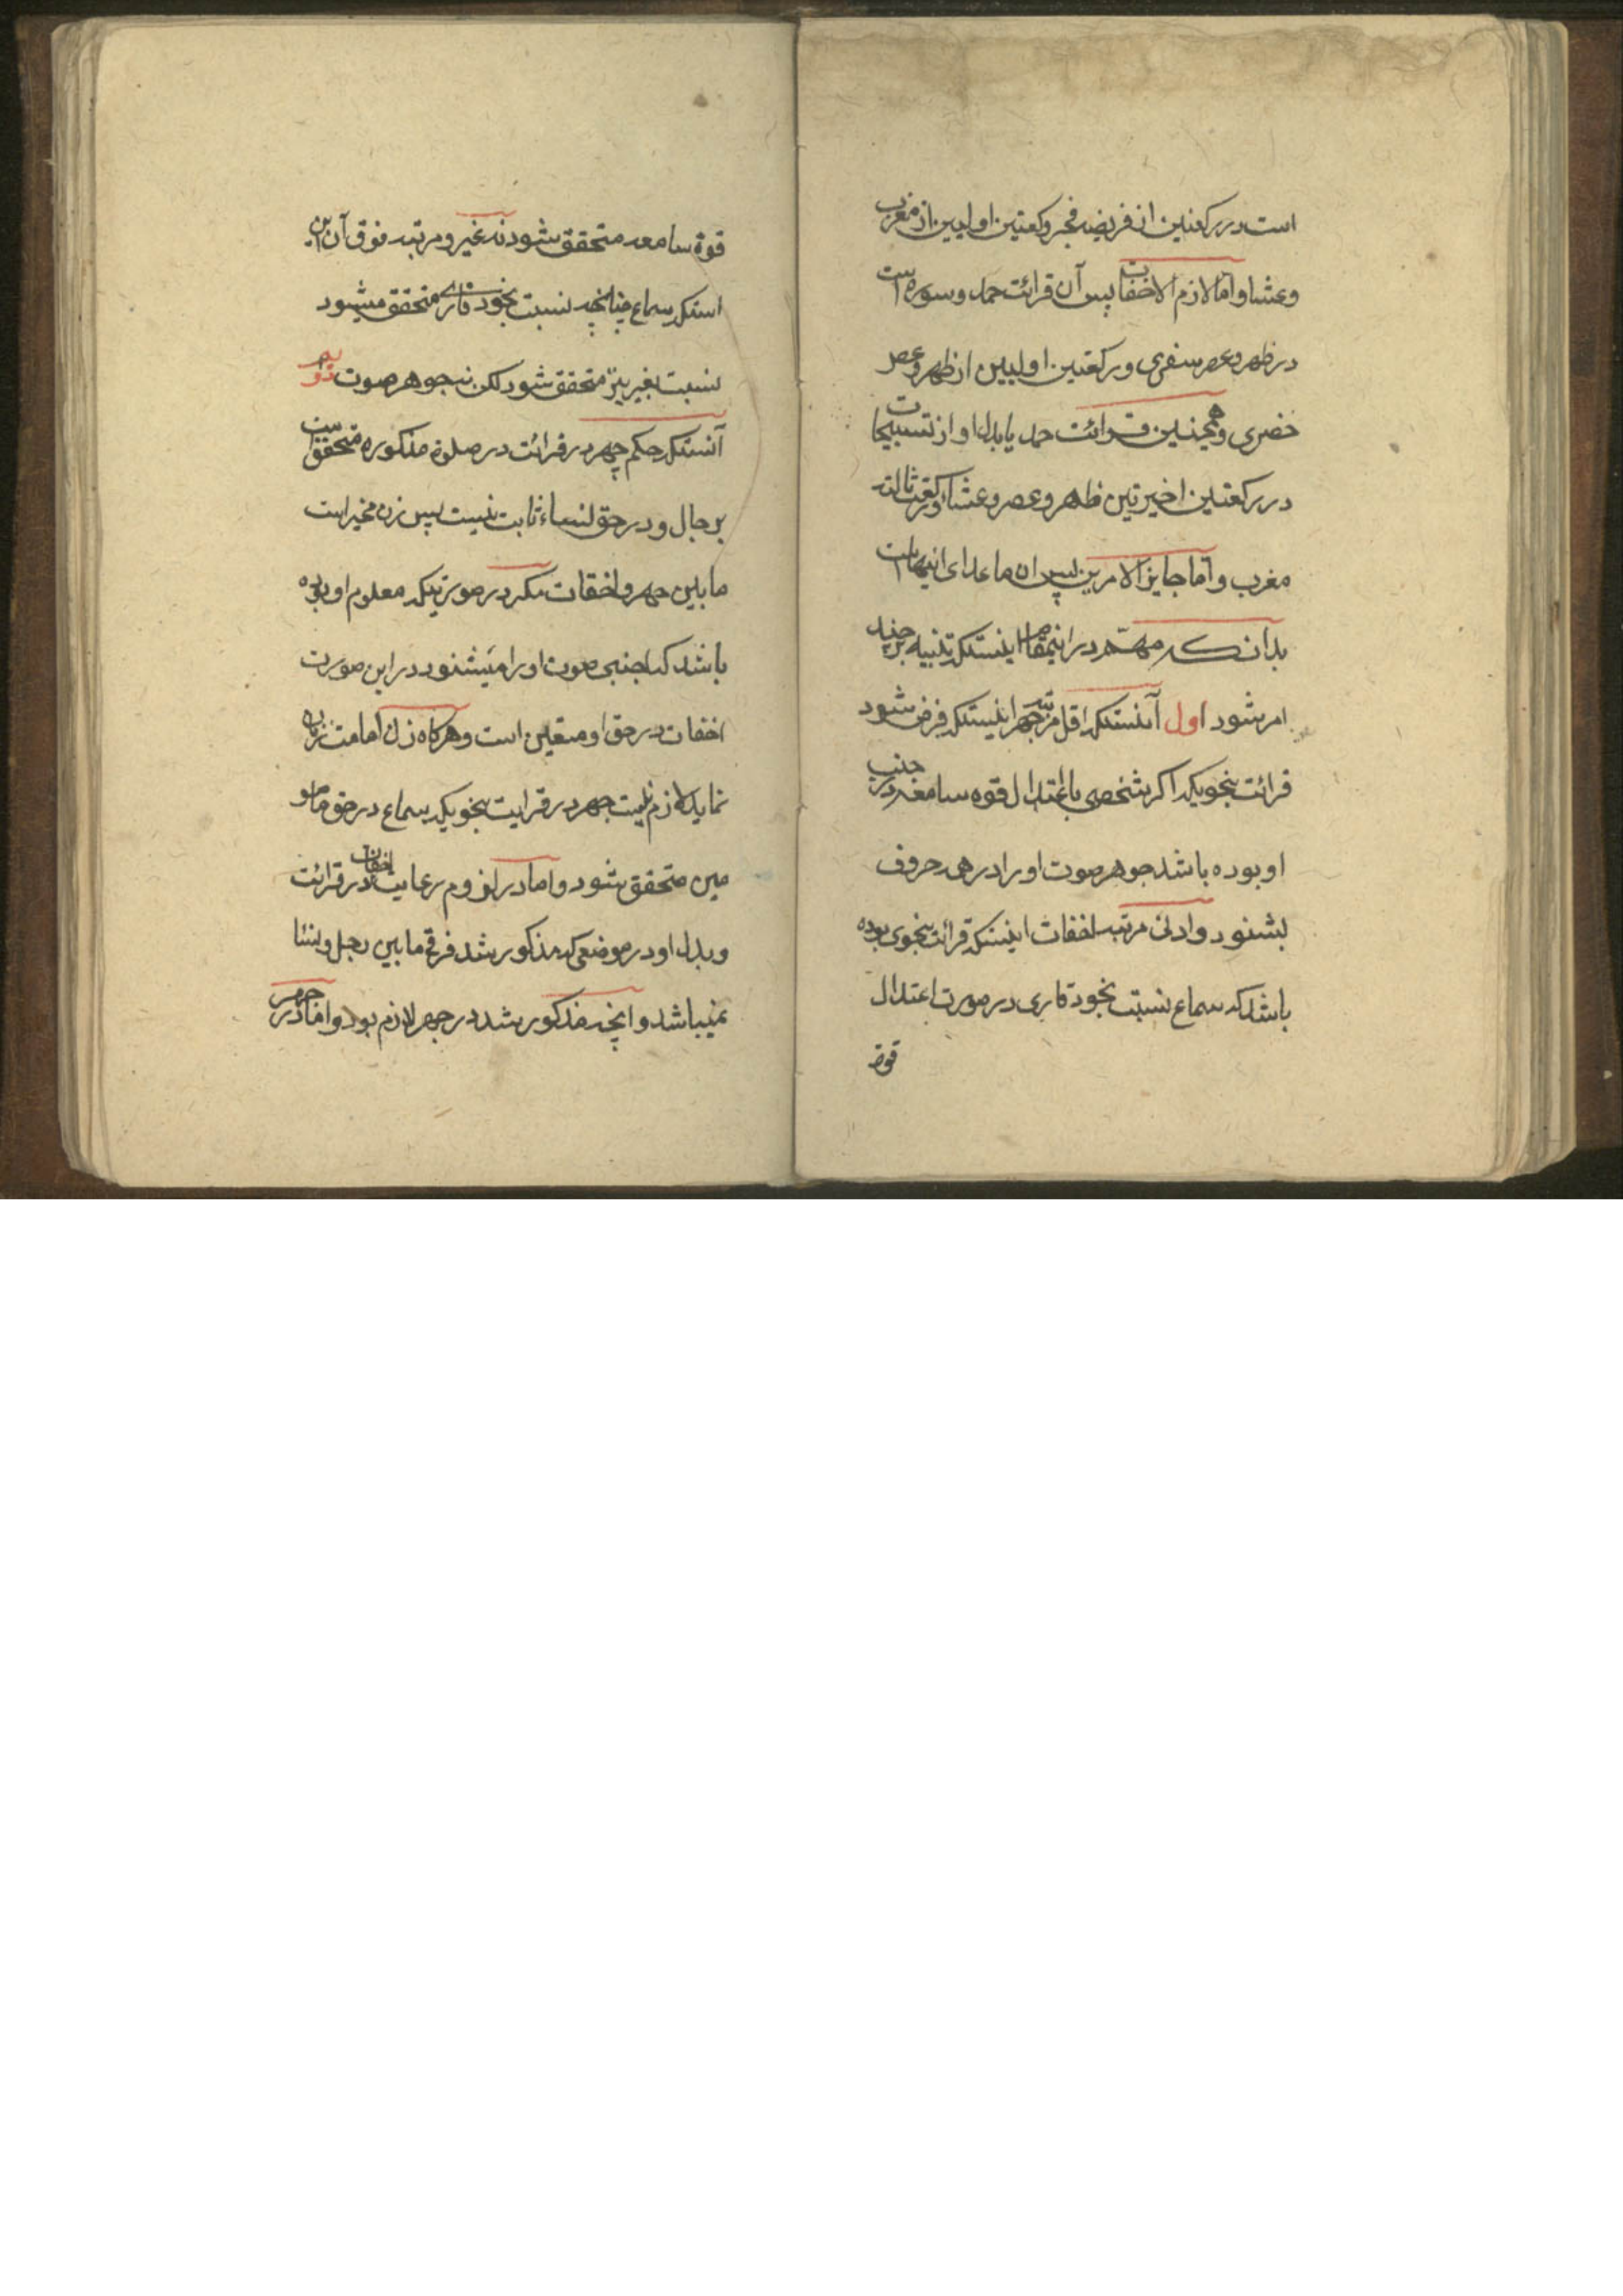 است در رکعتین از فریضه فجر و رکعتین اولیین از مغرب
و عشا و اما لازم الاخفات پس آن قرائت حمد و سوره است
در ظهر و عصر سفری و رکعتین اولیین از ظهر و عصر
حضری و همچنین قرائت حمد یا بدل او از تسبیحات
در رکعتین اخیرتین ظهر و عصر و عشاء و رکعت ثالثه
مغرب و اما جایز الامرین پس ان ما عدای اینهاست
بدانکه مهم در اینمقام اینستکه تنبیه بر چند
امر شود اول آنستکه اقل مرتبه جهر اینستکه فرض شود
قرائت بنحویکه اکر شخصی با اعتدال قوه سامعه در جنب
او بوده باشد جوهر صوت او را در هی حروف
بشنود و ادنی مرتبه اخفات اینستکه قرائت بنحوی بوده
باشد که سماع نسبت بخود قاری در صورت اعتدال
قوة
قوة سامعه متحقق شود نه غیر و مرتبه فوق آن این
استکه سماع چنانچه نسبت بخود قاری متحقق میشود
نسبت بغیر نیز متحقق شود لکن نه جوهر صوت دویم
آنستکه حکم جهر در قرائت در صلوة مذکوره متحقق است
برجال و در حق نساء ثابت نیست پس زن مخیر است
ما بین جهر و اخفات مکر در صورتیکه معلوم او بوده
باشد که اجنبی صوت او را میشنود در این صورت
اخفات در حق او متعین است و هرکاه زن امامت زنان
نماید لازم نیست جهر در قرایت بخویکه سماع در حق مامو
مین متحقق شود و اما در لزوم رعایت اخفات در قرائت
و بدل او در موضعی که مذکور شد فرقی ما بین رجل و نسا
نمیباشد و آنچه مذکور شد در جهر لازم بود و اما در جهر